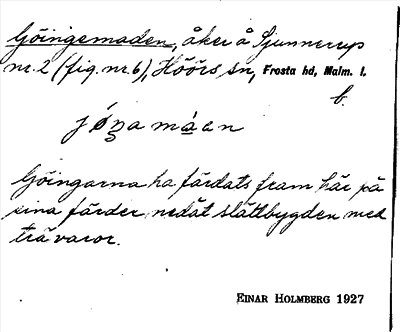 Göingemaden, åker å Sjunnerup
nr. 2 (fig. nr. 6), Höörs sn, Frosta hd, Malm. l.
b.
jó̱ŋa mà̱an
Göingarna ha färdats fram här på
sina färder nedåt slättbygden med
trävaror.
EINAR HOLMBERG 1927